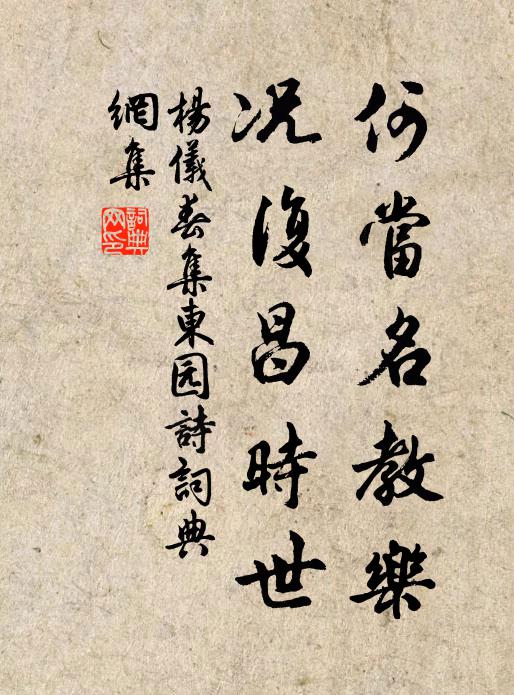 何當名教樂
况復昌時世
楊儀春集東园詩詞典
網集
詞典
网印